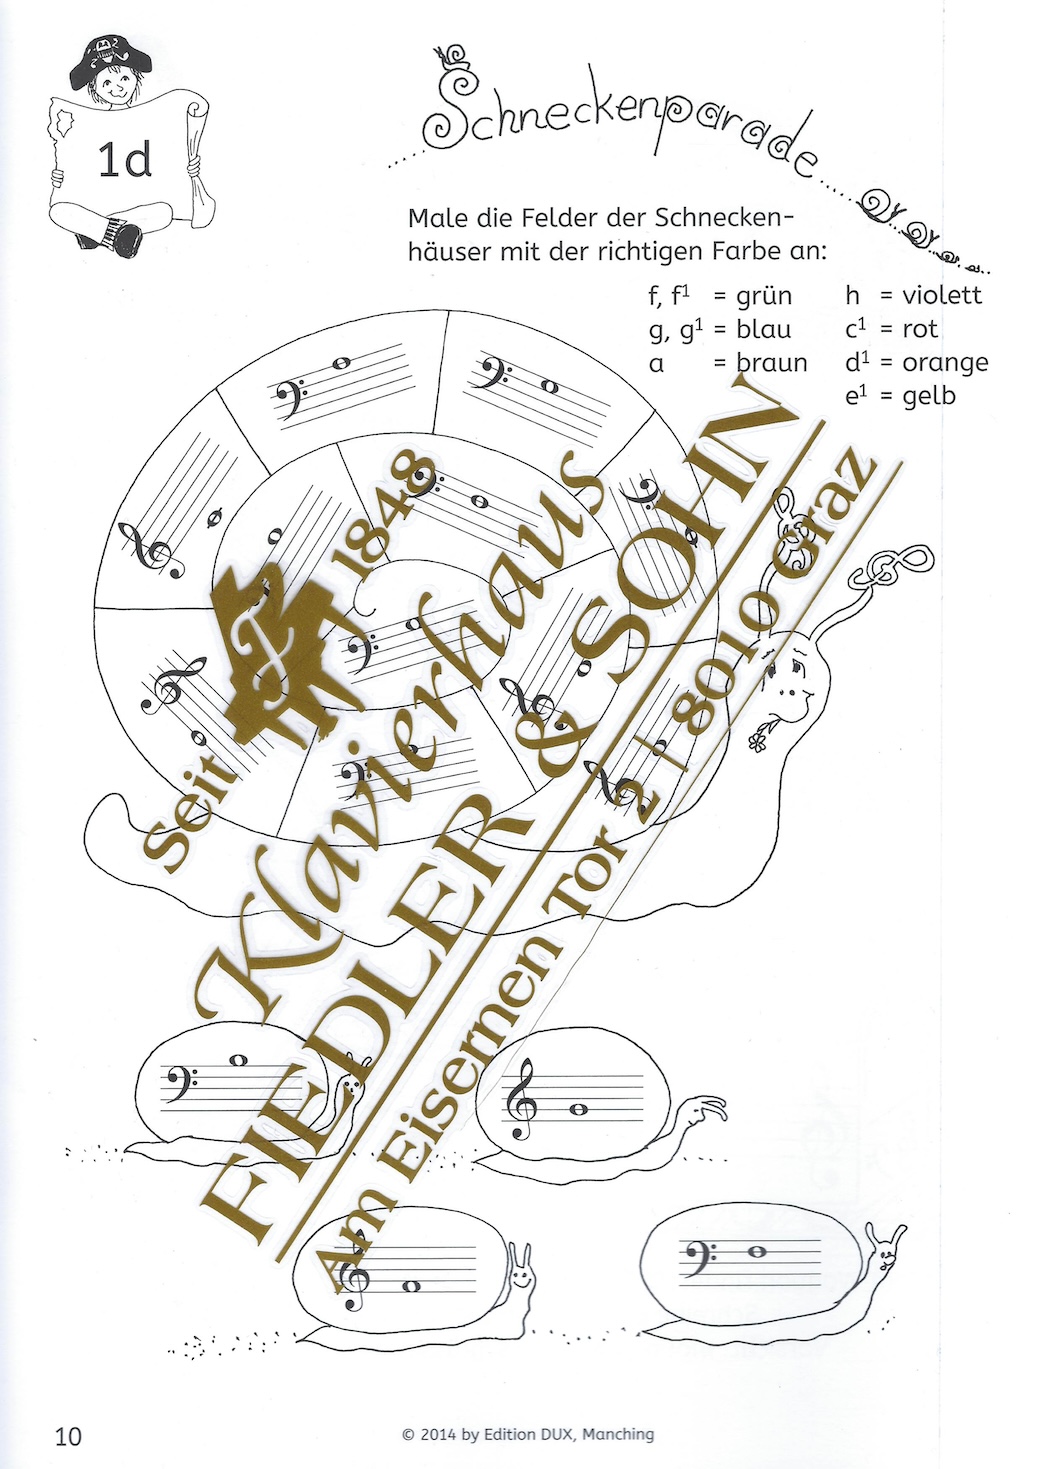 1d
Schneckenparade
Male die Felder der Schnecken-
häuser mit der richtigen Farbe an:
f, f¹ = grün
g, g¹ = blau
a = braun
h = violett
c¹ = rot
d¹ = orange
e¹ = gelb
Seit 1848
Klavierhaus
FIEDLER & SOHN
Am Eisernen Tor 2 | 8010 Graz
10
© 2014 by Edition DUX, Manching